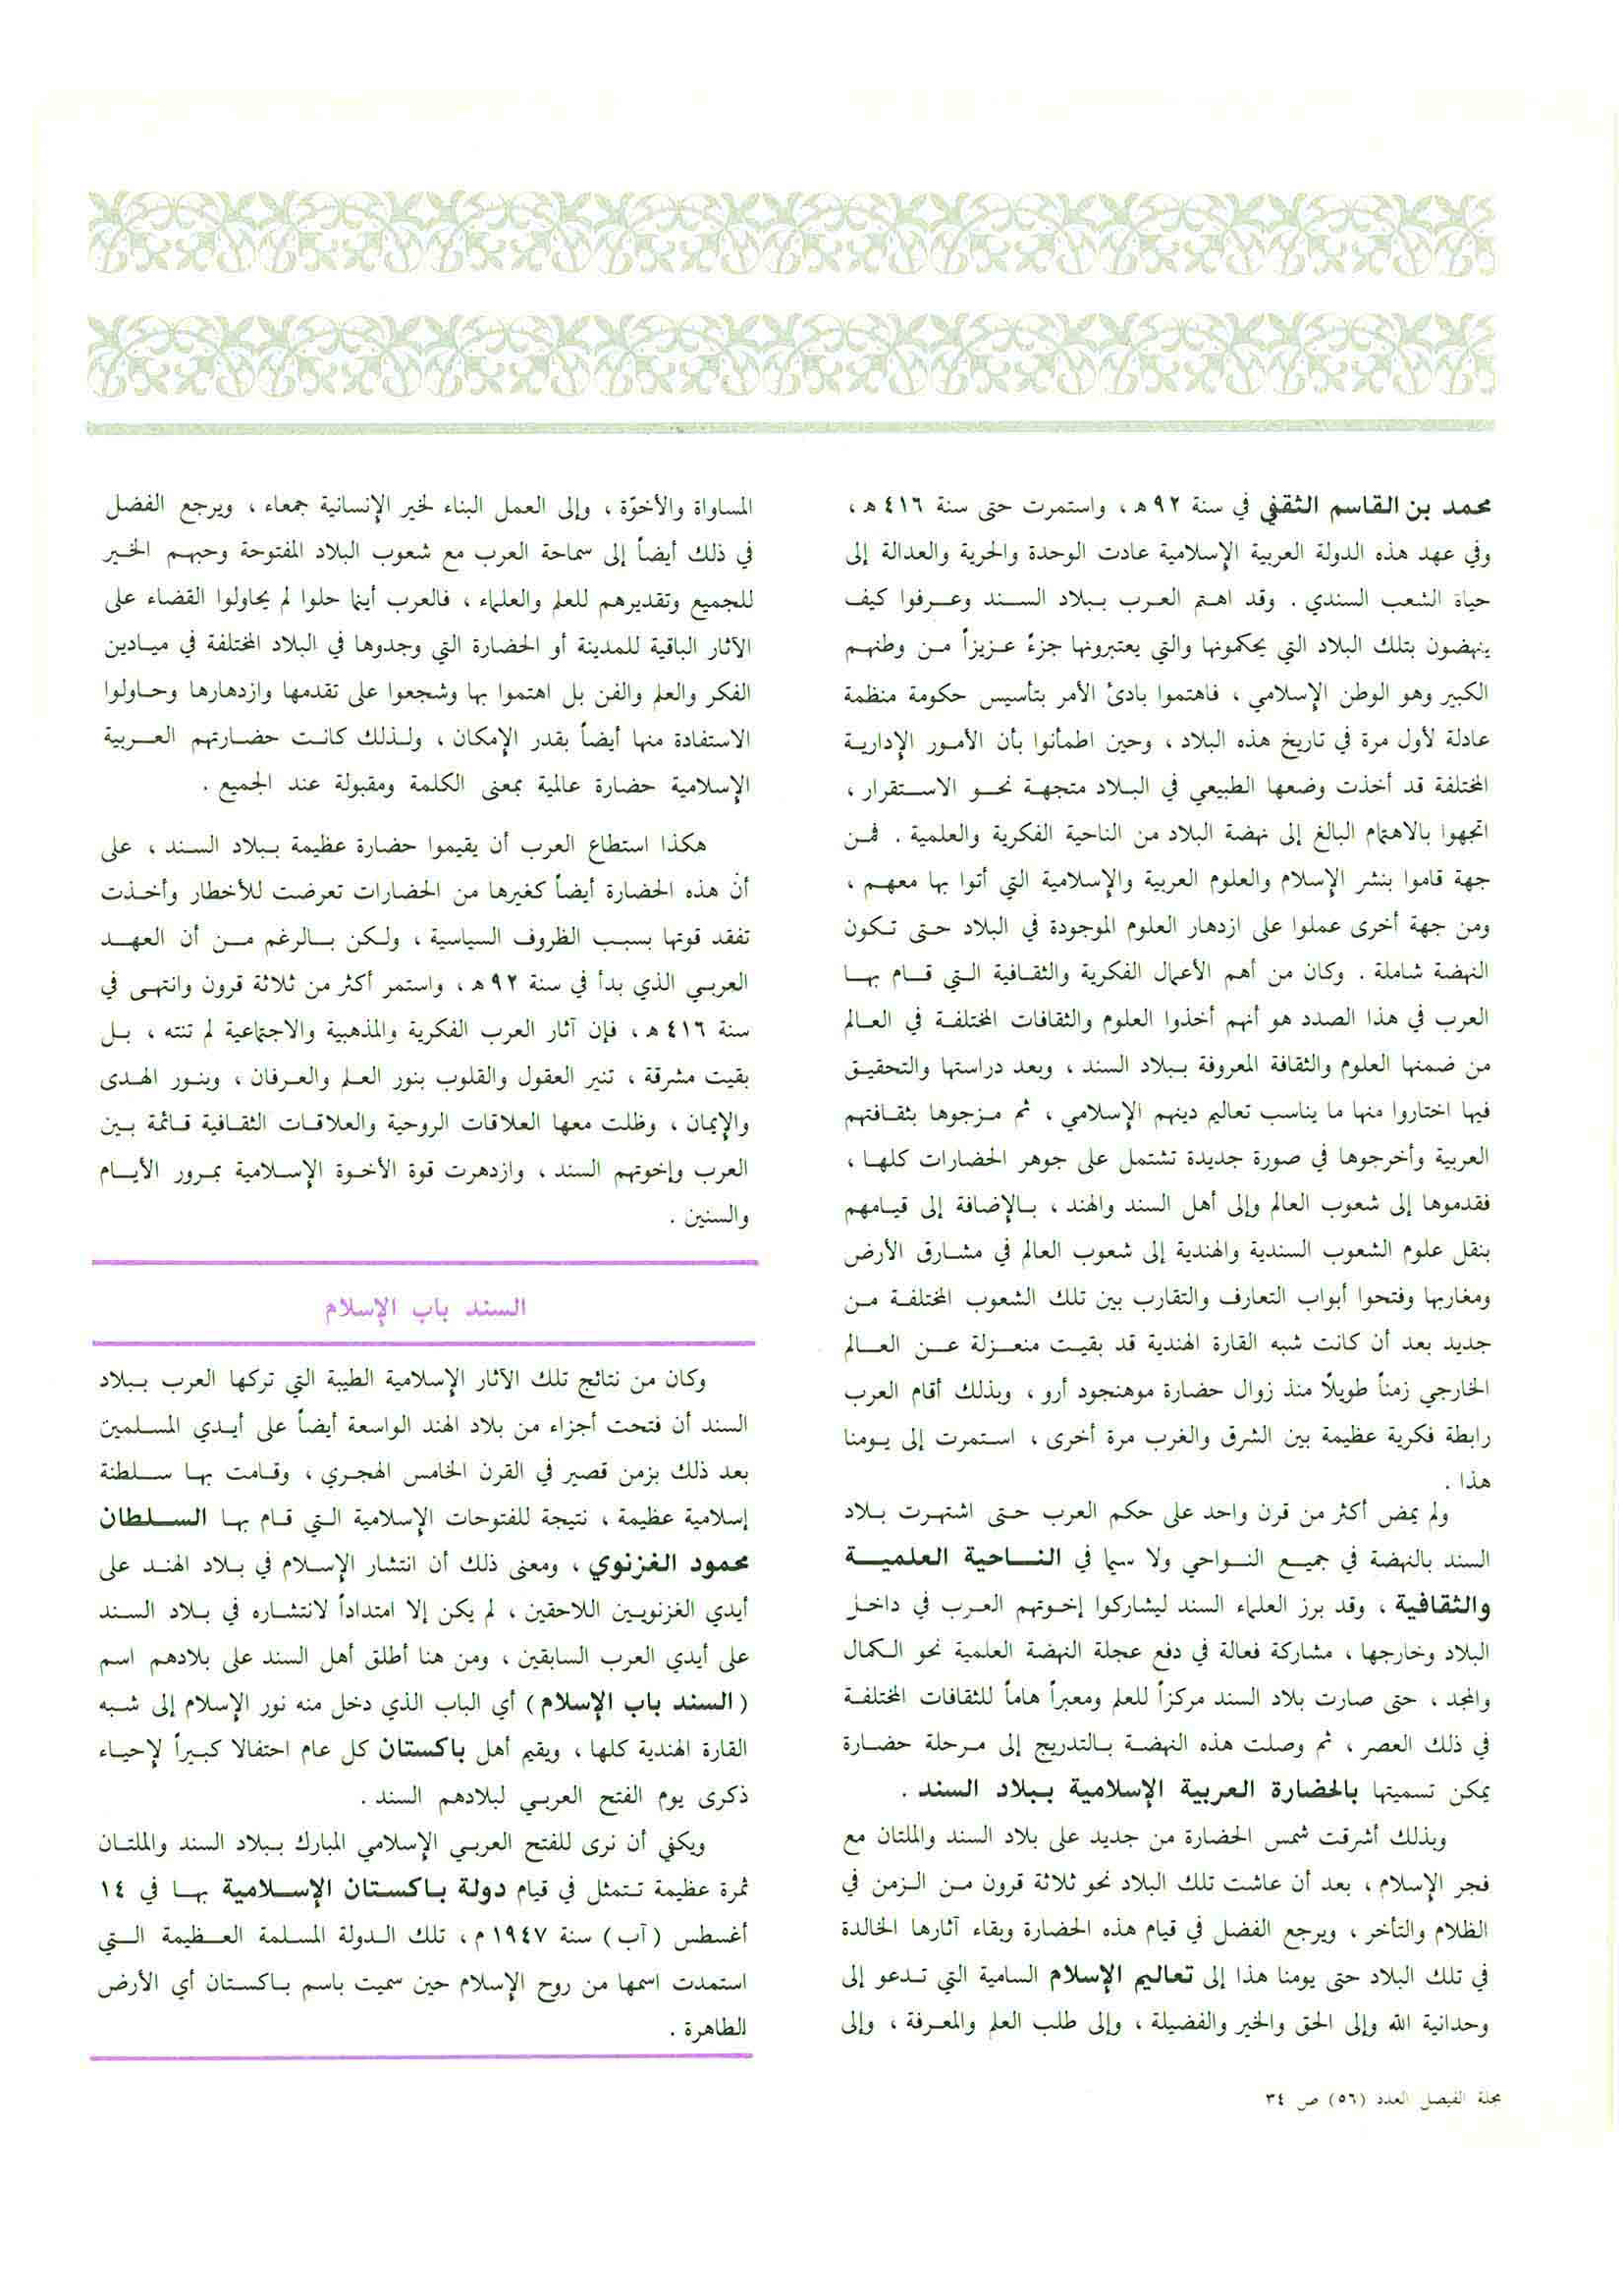 محمد بن القاسم الثقفي في سنة ٩٢ هـ ، واستمرت حتى سنة ٤١٦ هـ ،
وفي عهد هذه الدولة العربية الإسلامية عادت الوحدة والحرية والعدالة إلى
حياة الشعب السندي . وقد اهتم العرب ببلاد السند وعرفوا كيف
ينهضون بتلك البلاد التي يحكمونها والتي يعتبرونها جزءً عزيزاً من وطنهم
الكبير وهو الوطن الإسلامي ، فاهتموا بادئ الأمر بتأسيس حكومة منظمة
عادلة لأول مرة في تاريخ هذه البلاد ، وحين اطمأنوا بأن الأمور الإدارية
المختلفة قد أخذت وضعها الطبيعي في البلاد متجهة نحو الاستقرار ،
اتجهوا بالاهتمام البالغ إلى نهضة البلاد من الناحية الفكرية والعلمية . فمن
جهة قاموا بنشر الإسلام والعلوم العربية والإسلامية التي أتوا بها معهم ،
ومن جهة أخرى عملوا على ازدهار العلوم الموجودة في البلاد حتى تكون
النهضة شاملة . وكان من أهم الأعمال الفكرية والثقافية التي قام بها
العرب في هذا الصدد هو أنهم أخذوا العلوم والثقافات المختلفة في العالم
من ضمنها العلوم والثقافة المعروفة ببلاد السند ، وبعد دراستها والتحقيق
فيها اختاروا منها ما يناسب تعاليم دينهم الإسلامي ، ثم مزجوها بثقافتهم
العربية وأخرجوها في صورة جديدة تشتمل على جوهر الحضارات كلها ،
فقدموها إلى شعوب العالم وإلى أهل السند والهند ، بالإضافة إلى قيامهم
بنقل علوم الشعوب السندية والهندية إلى شعوب العالم في مشارق الأرض
ومغاربها وفتحوا أبواب التعارف والتقارب بين تلك الشعوب المختلفة من
جديد بعد أن كانت شبه القارة الهندية قد بقيت منعزلة عن العالم
الخارجي زمناً طويلاً منذ زوال حضارة موهنجود أرو ، وبذلك أقام العرب
رابطة فكرية عظيمة بين الشرق والغرب مرة أخرى ، استمرت إلى يومنا
هذا .
ولم يمض أكثر من قرن واحد على حكم العرب حتى اشتهرت بلاد
السند بالنهضة في جميع النواحي ولا سيما في الناحية العلمية
والثقافية ، وقد برز العلماء السند ليشاركوا إخوتهم العرب في داخل
البلاد وخارجها ، مشاركة فعالة في دفع عجلة النهضة العلمية نحو الكمال
والمجد ، حتى صارت بلاد السند مركزاً للعلم ومعبراً هاماً للثقافات المختلفة
في ذلك العصر ، ثم وصلت هذه النهضة بالتدريج إلى مرحلة حضارة
يمكن تسميتها بالحضارة العربية الإسلامية ببلاد السند .
وبذلك أشرقت شمس الحضارة من جديد على بلاد السند والملتان مع
فجر الإسلام ، بعد أن عاشت تلك البلاد نحو ثلاثة قرون من الزمن في
الظلام والتأخر ، ويرجع الفضل في قيام هذه الحضارة وبقاء آثارها الخالدة
في تلك البلاد حتى يومنا هذا إلى تعاليم الإسلام السامية التي تدعو إلى
وحدانية الله وإلى الحق والخير والفضيلة ، وإلى طلب العلم والمعرفة ، وإلى
المساواة والأخوّة ، وإلى العمل البناء لخير الإنسانية جمعاء ، ويرجع الفضل
في ذلك أيضاً إلى سماحة العرب مع شعوب البلاد المفتوحة وحبهم الخير
للجميع وتقديرهم للعلم والعلماء ، فالعرب أينما حلوا لم يحاولوا القضاء على
الآثار الباقية للمدينة أو الحضارة التي وجدوها في البلاد المختلفة في ميادين
الفكر والعلم والفن بل اهتموا بها وشجعوا على تقدمها وازدهارها وحاولوا
الاستفادة منها أيضاً بقدر الإمكان ، ولذلك كانت حضارتهم العربية
الإسلامية حضارة عالمية بمعنى الكلمة ومقبولة عند الجميع .
هكذا استطاع العرب أن يقيموا حضارة عظيمة ببلاد السند ، على
أن هذه الحضارة أيضاً كغيرها من الحضارات تعرضت للأخطار وأخذت
تفقد قوتها بسبب الظروف السياسية ، ولكن بالرغم من أن العهد
العربي الذي بدأ في سنة ٩٢ هـ ، واستمر أكثر من ثلاثة قرون وانتهى في
سنة ٤١٦ هـ ، فإن آثار العرب الفكرية والمذهبية والاجتماعية لم تنته ، بل
بقيت مشرقة ، تنير العقول والقلوب بنور العلم والعرفان ، وبنور الهدى
والإيمان ، وظلت معها العلاقات الروحية والعلاقات الثقافية قائمة بين
العرب وإخوتهم السند ، وازدهرت قوة الأخوة الإسلامية بمرور الأيام
والسنين .
السند باب الإسلام
وكان من نتائج تلك الآثار الإسلامية الطيبة التي تركها العرب ببلاد
السند أن فتحت أجزاء من بلاد الهند الواسعة أيضاً على أيدي المسلمين
بعد ذلك بزمن قصير في القرن الخامس الهجري ، وقامت بها سلطنة
إسلامية عظيمة ، نتيجة للفتوحات الإسلامية التي قام بها السلطان
محمود الغزنوي ، ومعنى ذلك أن انتشار الإسلام في بلاد الهند على
أيدي الغزنويين اللاحقين ، لم يكن إلا امتداداً لانتشاره في بلاد السند
على أيدي العرب السابقين ، ومن هنا أطلق أهل السند على بلادهم اسم
( السند باب الإسلام ) أي الباب الذي دخل منه نور الإسلام إلى شبه
القارة الهندية كلها ، ويقيم أهل باكستان كل عام احتفالا كبيراً لإحياء
ذكرى يوم الفتح العربي لبلادهم السند .
ويكفي أن نرى للفتح العربي الإسلامي المبارك ببلاد السند والملتان
ثمرة عظيمة تتمثل في قيام دولة باكستان الإسلامية بها في ١٤
أغسطس ( آب ) سنة ١٩٤٧ م ، تلك الدولة المسلمة العظيمة التي
استمدت اسمها من روح الإسلام حين سميت باسم باكستان أي الأرض
الطاهرة .
مجلة الفيصل العدد (٥٦) ص ٣٤